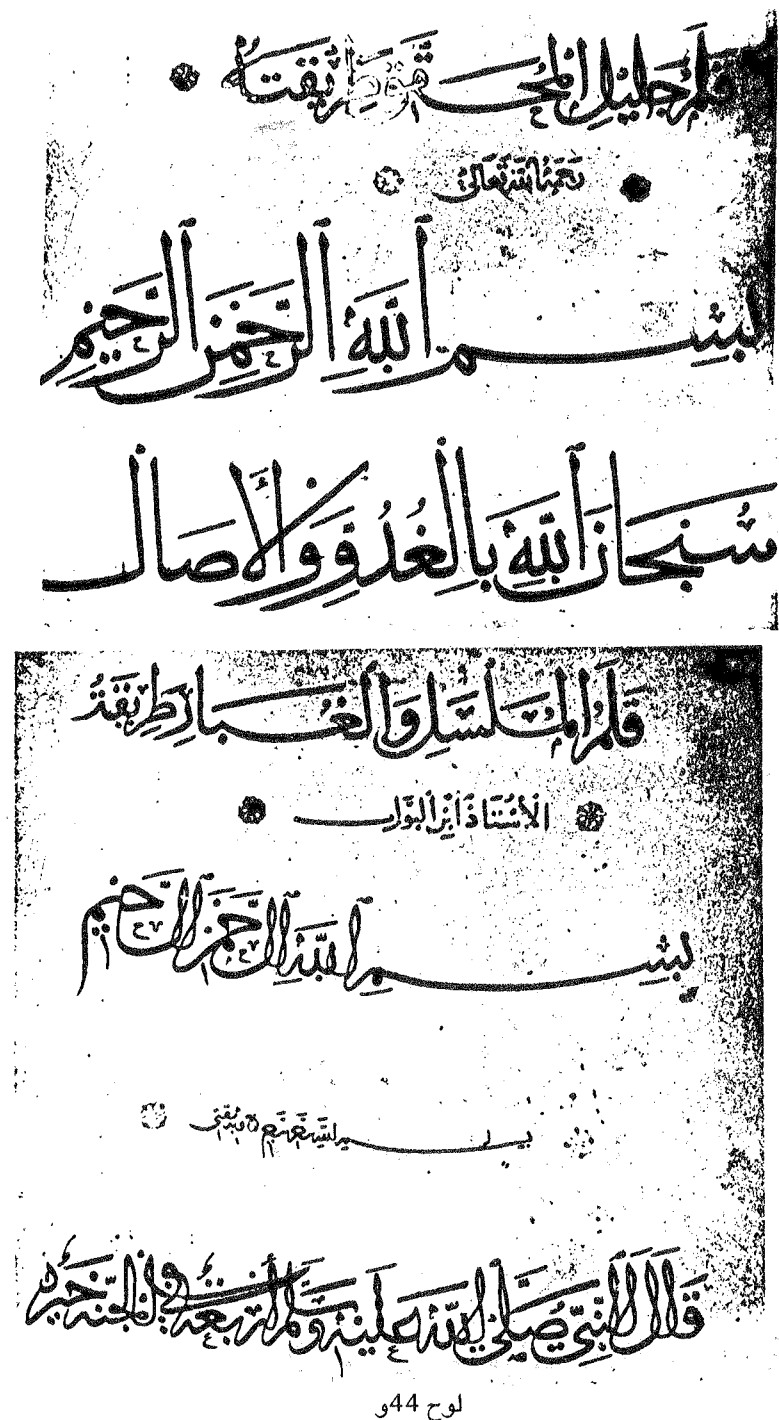 قَلَم جَلِيل المُحَقَّق طَرِيقته
رَحِمَهُ اللهُ تَعَالَى
بِسْمِ ٱللَّهِ ٱلرَّحْمَٰنِ ٱلرَّحِيمِ
سُبْحَانَ ٱللَّهِ بِالْغُدُوِّ وَالْأَصَال
قَلَم المُسَلْسَل وَالغُبَار طَرِيقَة
الأُسْتَاذ ابْن البَوَّاب
بِسْمِ اللَّهِ الرَّحْمَن الرَّحِيم
قَالَ النَّبِيّ صَلَّى اللَّه عَلَيْهِ وَسَلَّم أَرْبَعَة في الجنة خير
لوح 44و